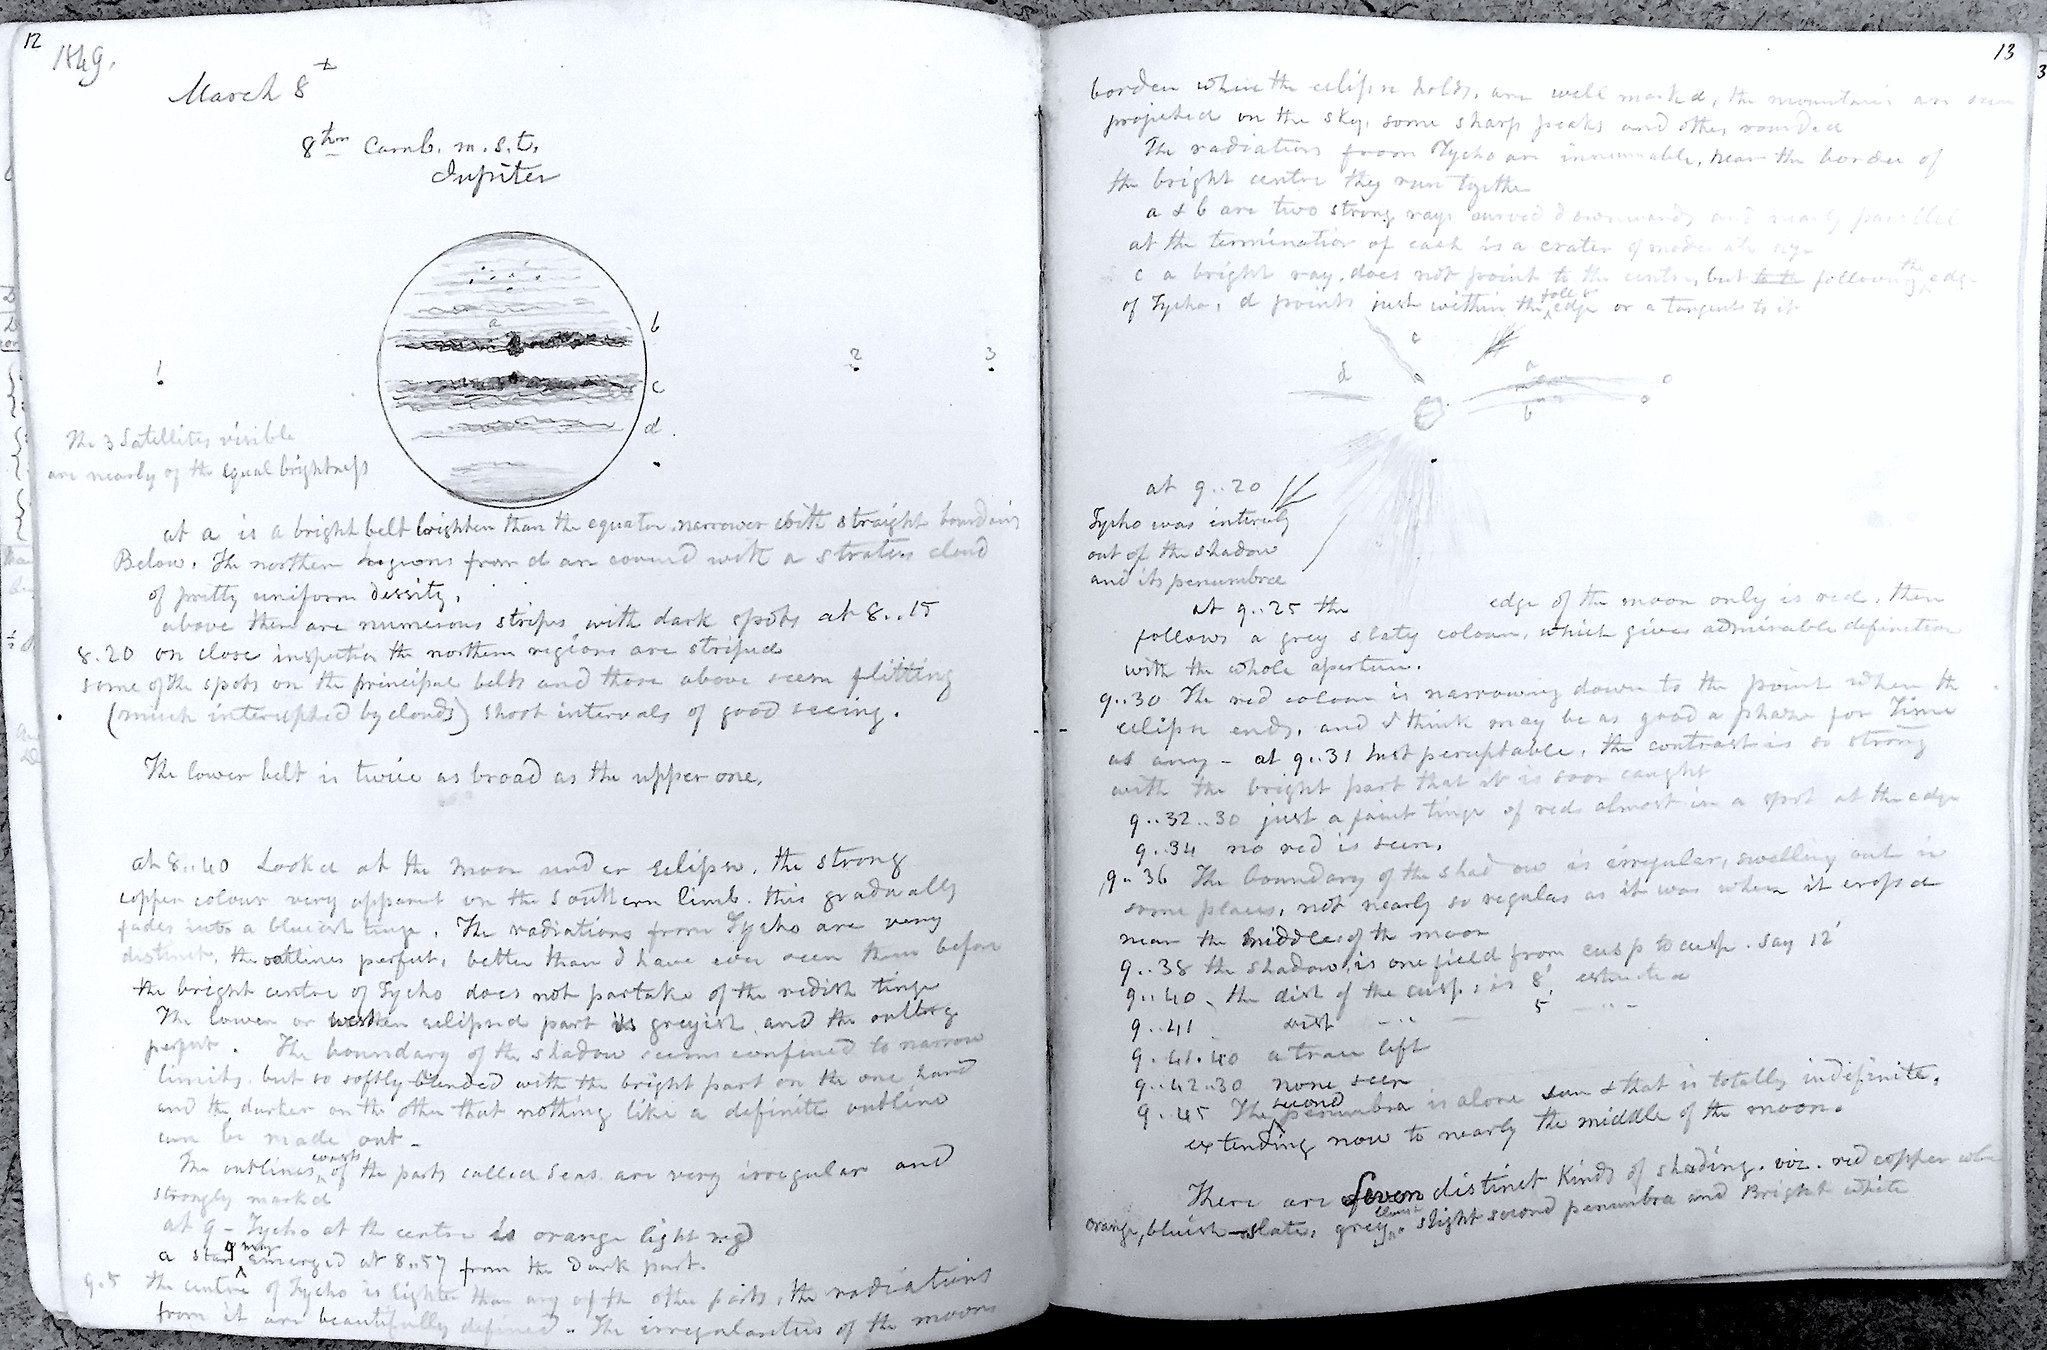 12
1849.
March 8th
8hm Camb. m. s. t.
Jupiter
a
b
c
d
1
2
3
The 3 Satellites visible
are nearly of the equal brightness
at a is a bright belt brighter than the equator, narrower with straight
Below. The northern regions from d are covered with a stratus cloud
of pretty uniform density.
above there are numerous stripes with dark spots at 8..15
8.20 on close inspection the northern regions are striped
some of the spots on the principal belts and those above seem flitting
(much interupted by clouds) short intervals of good seeing.
The lower belt is twice as broad as the upper one.
at 8..40 Looked at the moon under eclipse, the strong
copper colour very apparent on the Southern limb. this gradually
fades into a blueish tinge. The radiations from Tycho are very
distinct, the outlines perfect, better than I have ever seen them before
the bright centre of Tycho does not partake of the redish tinge
The lower or western eclipsed part is greyish and the outlines
perfect. The boundary of the shadow seems confined to narrow
limits, but so softly blended with the bright part on the one hand
and the darker on the other that nothing like a definite outline
can be made out -
The outlines of the parts called Seas are very irregular and
strongly marked
at 9 - Tycho at the centre is orange light red
a star 9 mag emerged at 8..57 from the dark part.
9.5 the centre of Tycho is lighter than any of the other parts, the radiations
from it are beautifully defined - The irregularities of the moons
13
border where the eclipse holds, are well marked, the mountains are seen
projected on the sky, some sharp peaks and other rounded
The radiations from Tycho are innumerable, near the border of
the bright centre they run together
a & b are two strong rays curved downwards and nearly parallel
at the termination of each is a crater of moderate size
c a bright ray, does not point to the centre, but to the following the edge
of Tycho, d points just within the follg edge or a tangent to it
c
d
a
b
at 9..20
Tycho was intirely
out of the shadow
and its penumbra
at 9..25 the edge of the moon only is red, then
follows a grey slaty colour, which gives admirable definition
with the whole aperture.
9..30 The red colour is narrowing down to the point where the
eclipse ends, and I think may be as good a phase for Time
as any - at 9..31 Just perceptable, the contrast is so strong
with the bright part that it is soon caught
9..32..30 just a faint tinge of red almost in a spot at the edge
9..34 no red is seen.
9..36 The boundary of the shadow is irregular, swelling out in
some places, not nearly so regular as it was when it crossed
near the middle of the moon
9..38 the shadow is one field from cusp to cusp. say 12'
9..40 the dist of the cusps is 8' estimated
9..41 dist - .. - 5 - .. -
9.41.40 a trace left
9..42..30 none seen
9..45 The second penumbra is alone seen & that is totally indefinite,
extending now to nearly the middle of the moon.
There are seven distinct Kinds of shading. viz. red copper
orange, bluish slate, grey blueish, slight second penumbra and Bright white